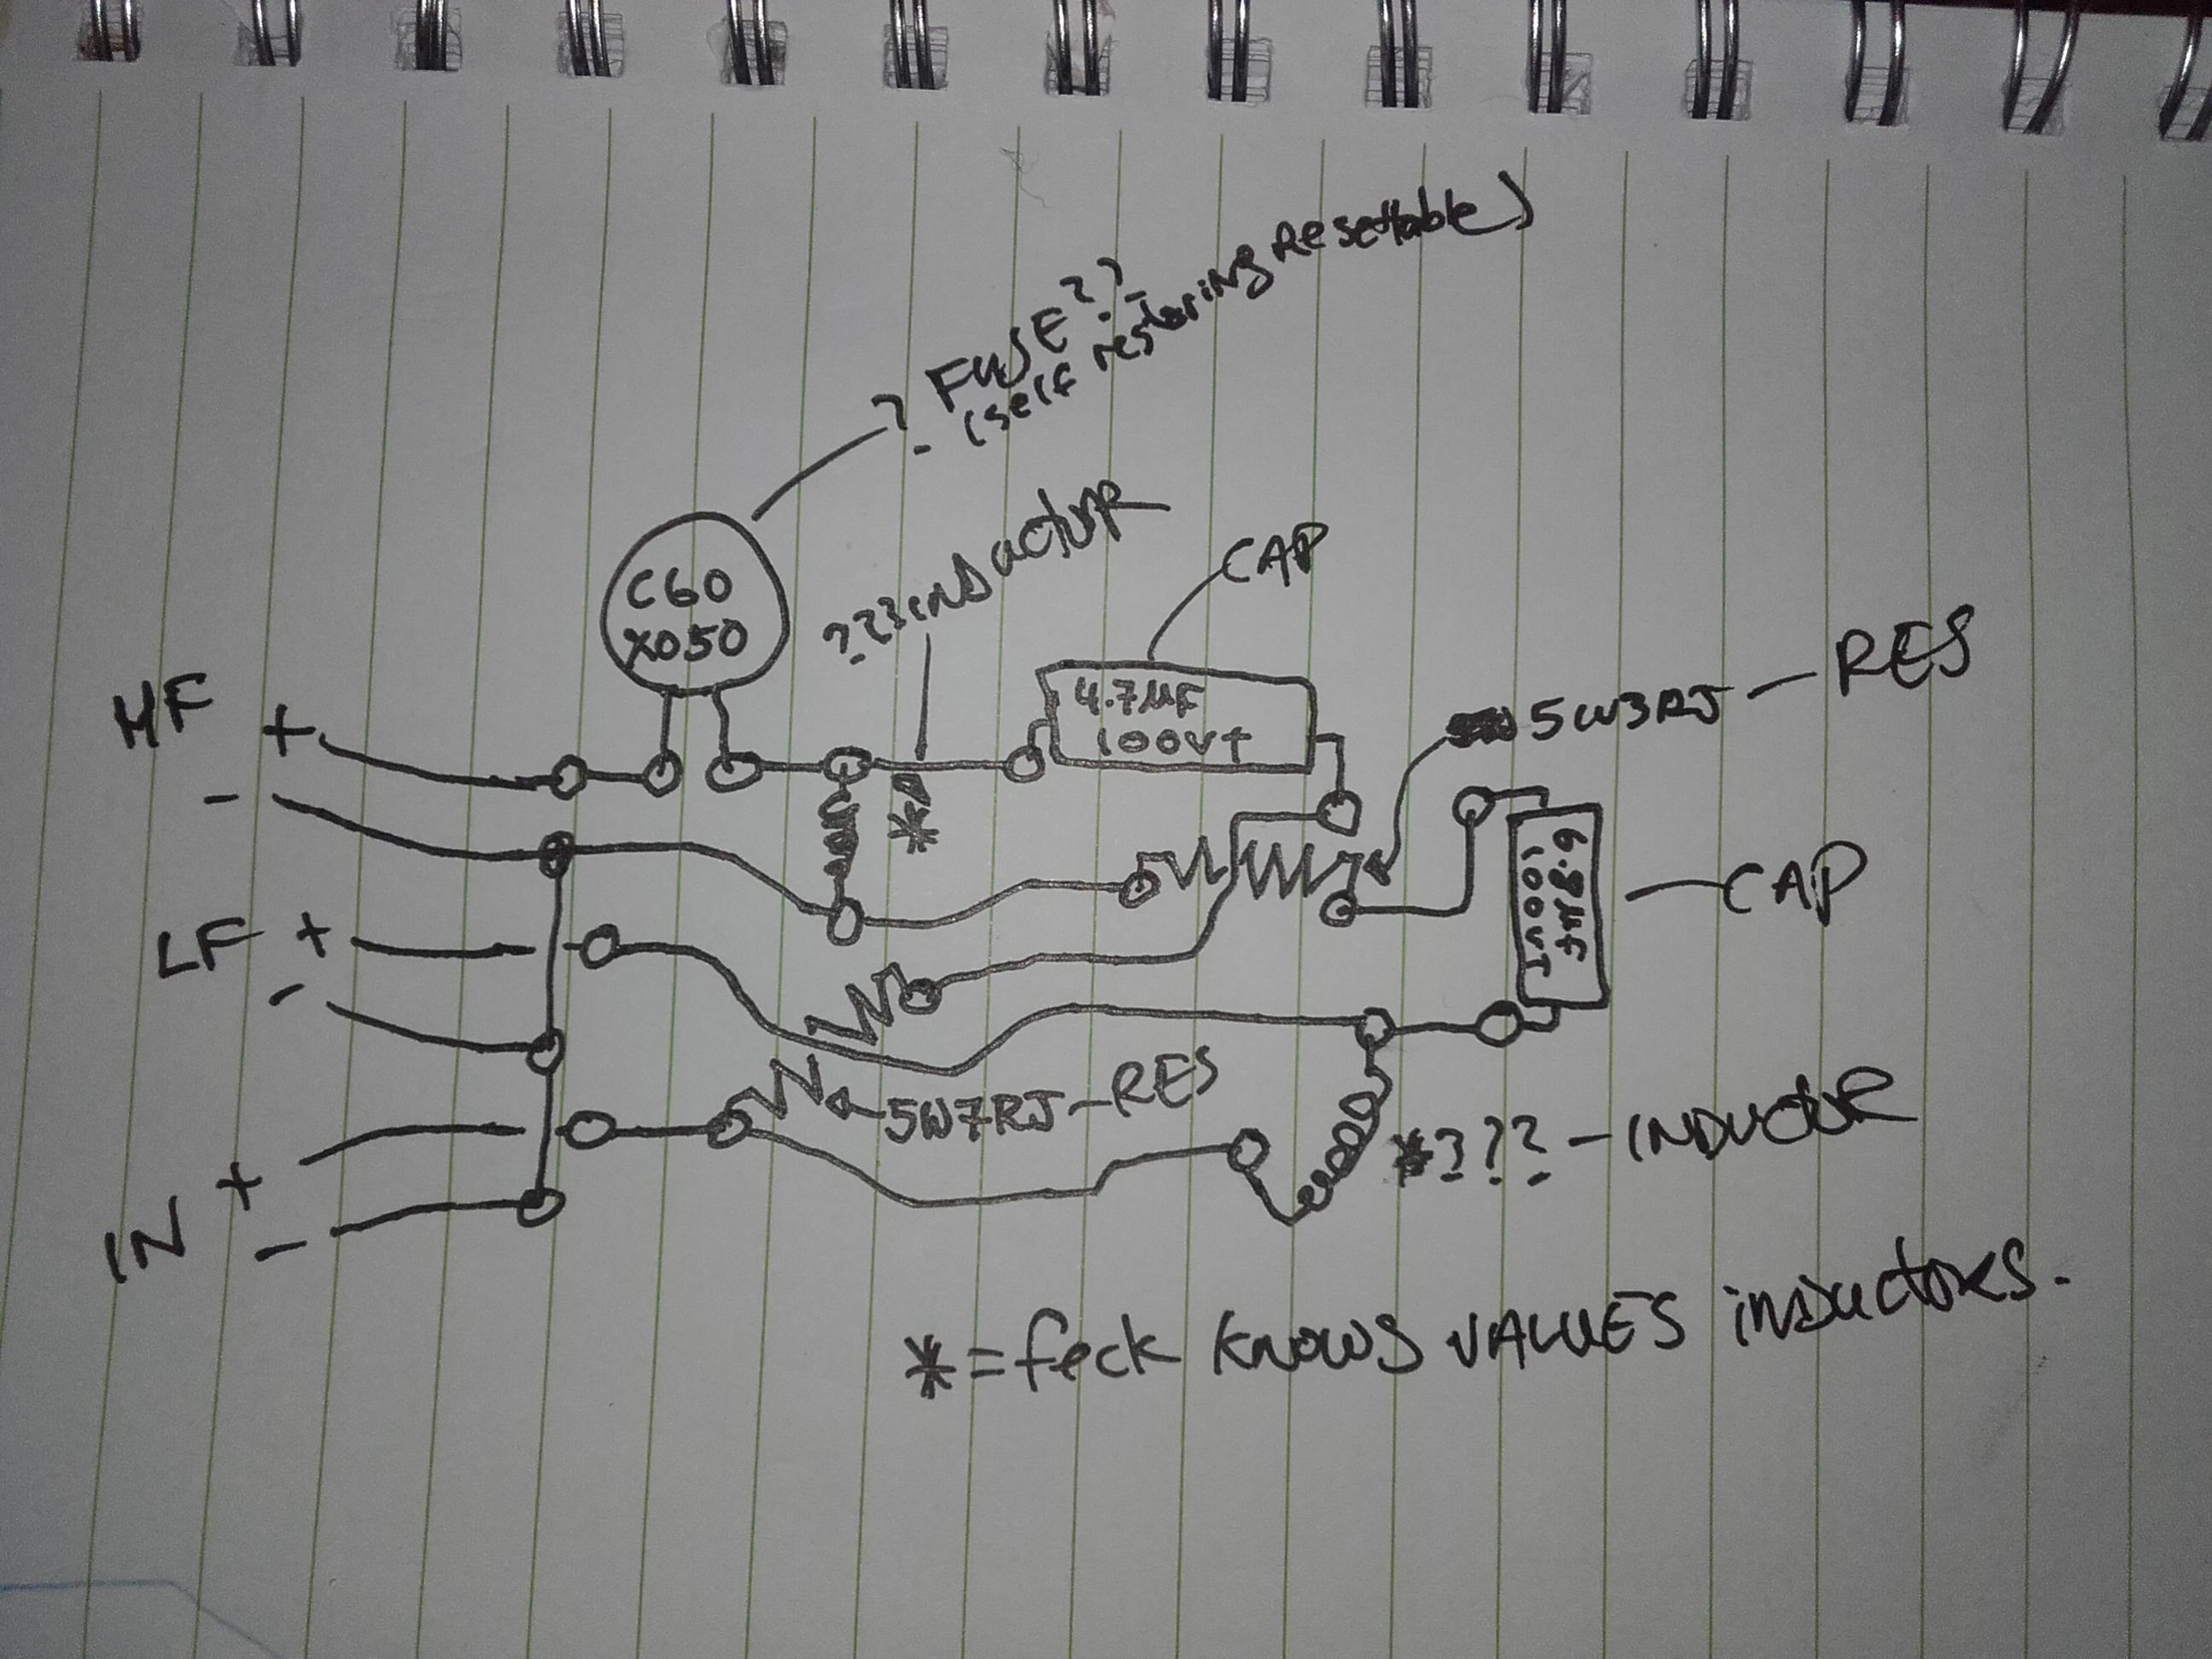 ? FUSE??
(self restoring Resettable)
C60
X050
??? INDUCTOR
CAP
4.7µF
100V†
5W3RJ - RES
HF +
-
*
6.8µF
100V†
- CAP
LF +
-
5W7RJ - RES
*??? - INDUCTOR
IN +
-
* = feck KNOWS VALUES INDUCTORS.